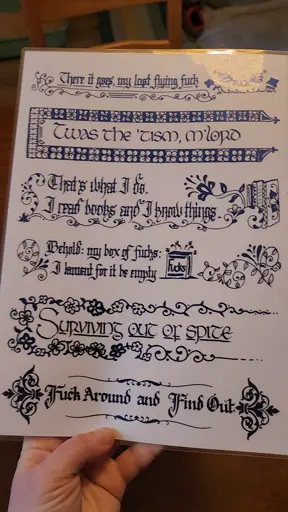 There it goes, my last flying fuck
'Twas the 'tism, m'lord
That's what I do.
I read books and I know things.
Behold: my box of fucks:
I lament for it be empty
fucks
Surviving out of spite
Fuck Around and Find Out